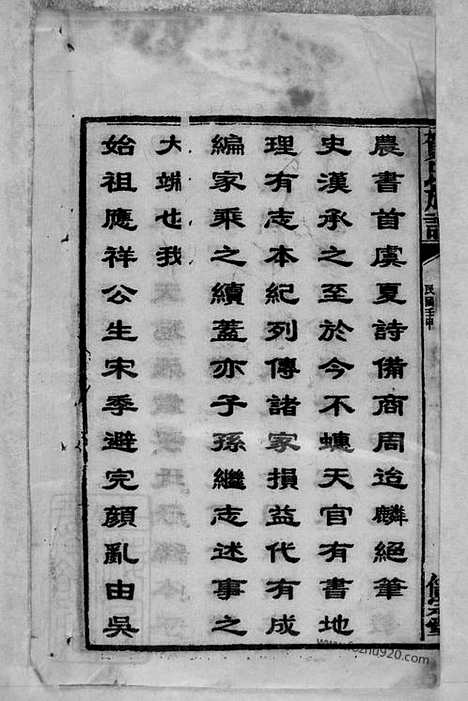 氏族譜
民國壬申
農書首虞夏詩備商周迨麟絕筆
史漢承之至於今不天官有書地
理有志本紀列傳諸家損益代有成
編家乘之續蓋亦子孫繼志述事之
大端也我
始祖應祥公生宋季避完顏亂由吳